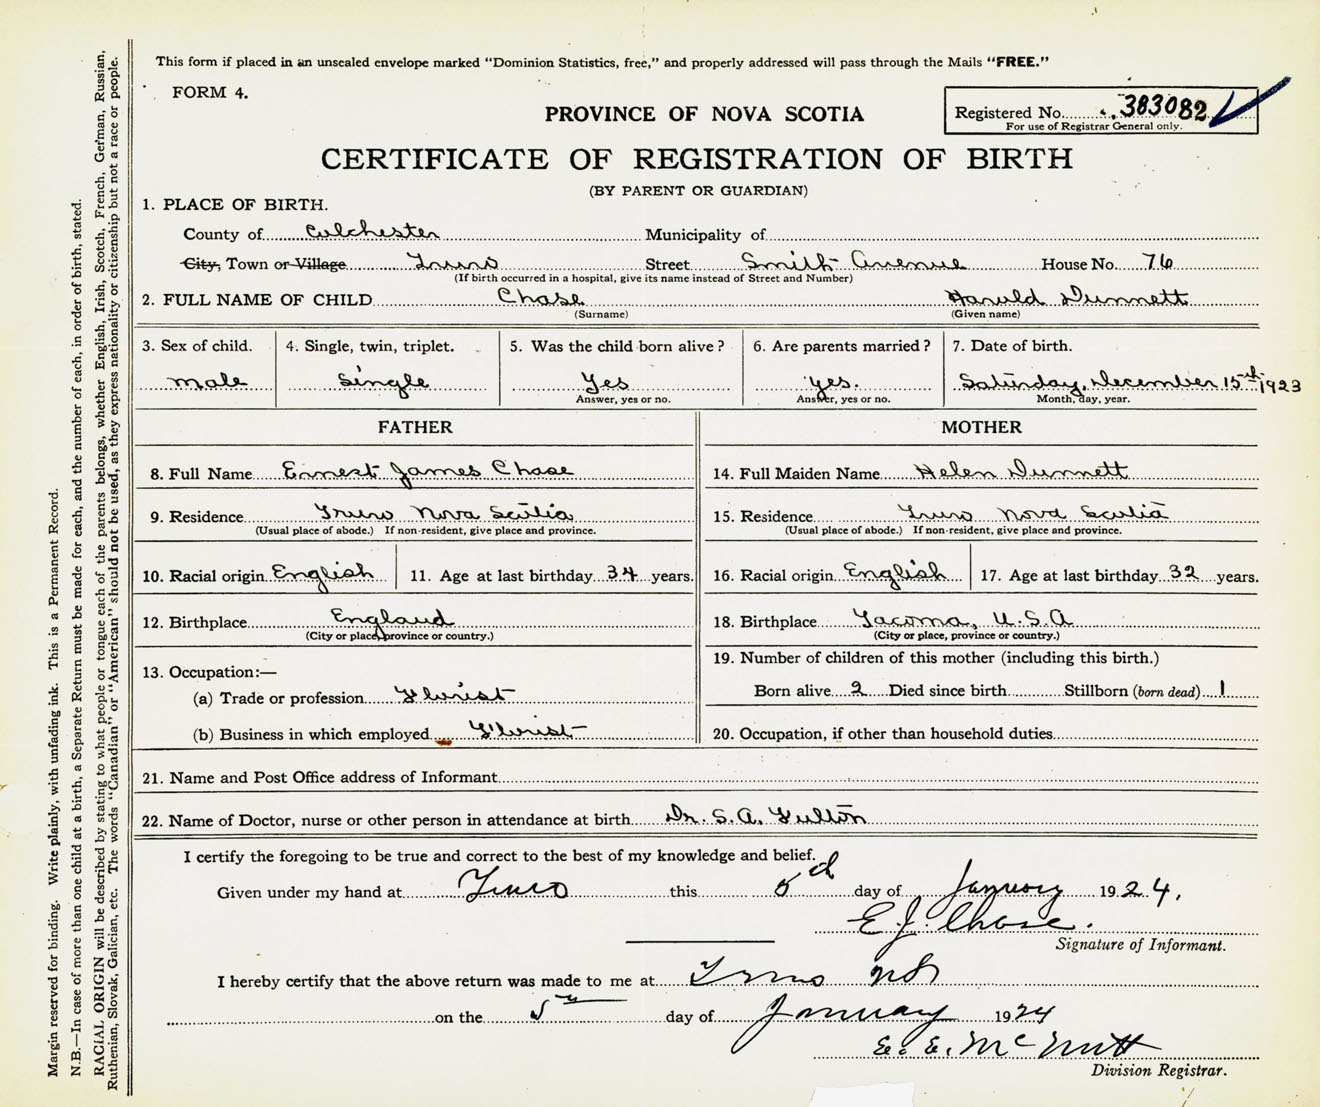 This form if placed in an unsealed envelope marked "Dominion Statistics, free," and properly addressed will pass through the Mails "FREE."
FORM 4.
PROVINCE OF NOVA SCOTIA
Registered No. 383082
For use of Registrar General only.
CERTIFICATE OF REGISTRATION OF BIRTH
(BY PARENT OR GUARDIAN)
1. PLACE OF BIRTH.
County of Colchester Municipality of
City, Town or Village Truro Street Smith Avenue House No. 76
(If birth occurred in a hospital, give its name instead of Street and Number)
2. FULL NAME OF CHILD Chase Harold Dunnett
(Surname) (Given name)
3. Sex of child. 4. Single, twin, triplet. 5. Was the child born alive? 6. Are parents married? 7. Date of birth.
male single Yes yes. Saturday, December 15th 1923
Answer, yes or no. Answer, yes or no. Month, day, year.
FATHER MOTHER
8. Full Name Ernest James Chase 14. Full Maiden Name Helen Dunnett
9. Residence Truro Nova Scotia 15. Residence Truro Nova Scotia
(Usual place of abode.) If non-resident, give place and province. (Usual place of abode.) If non-resident, give place and province.
10. Racial origin English 11. Age at last birthday 34 years. 16. Racial origin English 17. Age at last birthday 32 years.
12. Birthplace England 18. Birthplace Tacoma, U.S.A
(City or place, province or country.) (City or place, province or country.)
13. Occupation:— 19. Number of children of this mother (including this birth.)
(a) Trade or profession Florist Born alive 2 Died since birth Stillborn (born dead) 1
(b) Business in which employed Florist 20. Occupation, if other than household duties
21. Name and Post Office address of Informant
22. Name of Doctor, nurse or other person in attendance at birth Dr. S. A. Fulton
I certify the foregoing to be true and correct to the best of my knowledge and belief.
Given under my hand at Truro this 5th day of January 1924.
E J. Chase.
Signature of Informant.
I hereby certify that the above return was made to me at Truro NS
on the 5th day of January 1924
E. E. McNutt
Division Registrar.
Margin reserved for binding. Write plainly, with unfading ink. This is a Permanent Record.
N.B.—In case of more than one child at a birth, a Separate Return must be made for each, and the number of each, in order of birth, stated.
RACIAL ORIGIN will be described by stating to what people or tongue each of the parents belongs, whether English, Irish, Scotch, French, German, Russian,
Ruthenian, Slovak, Galician, etc. The words "Canadian" or "American" should not be used, as they express nationality or citizenship but not a race or people.